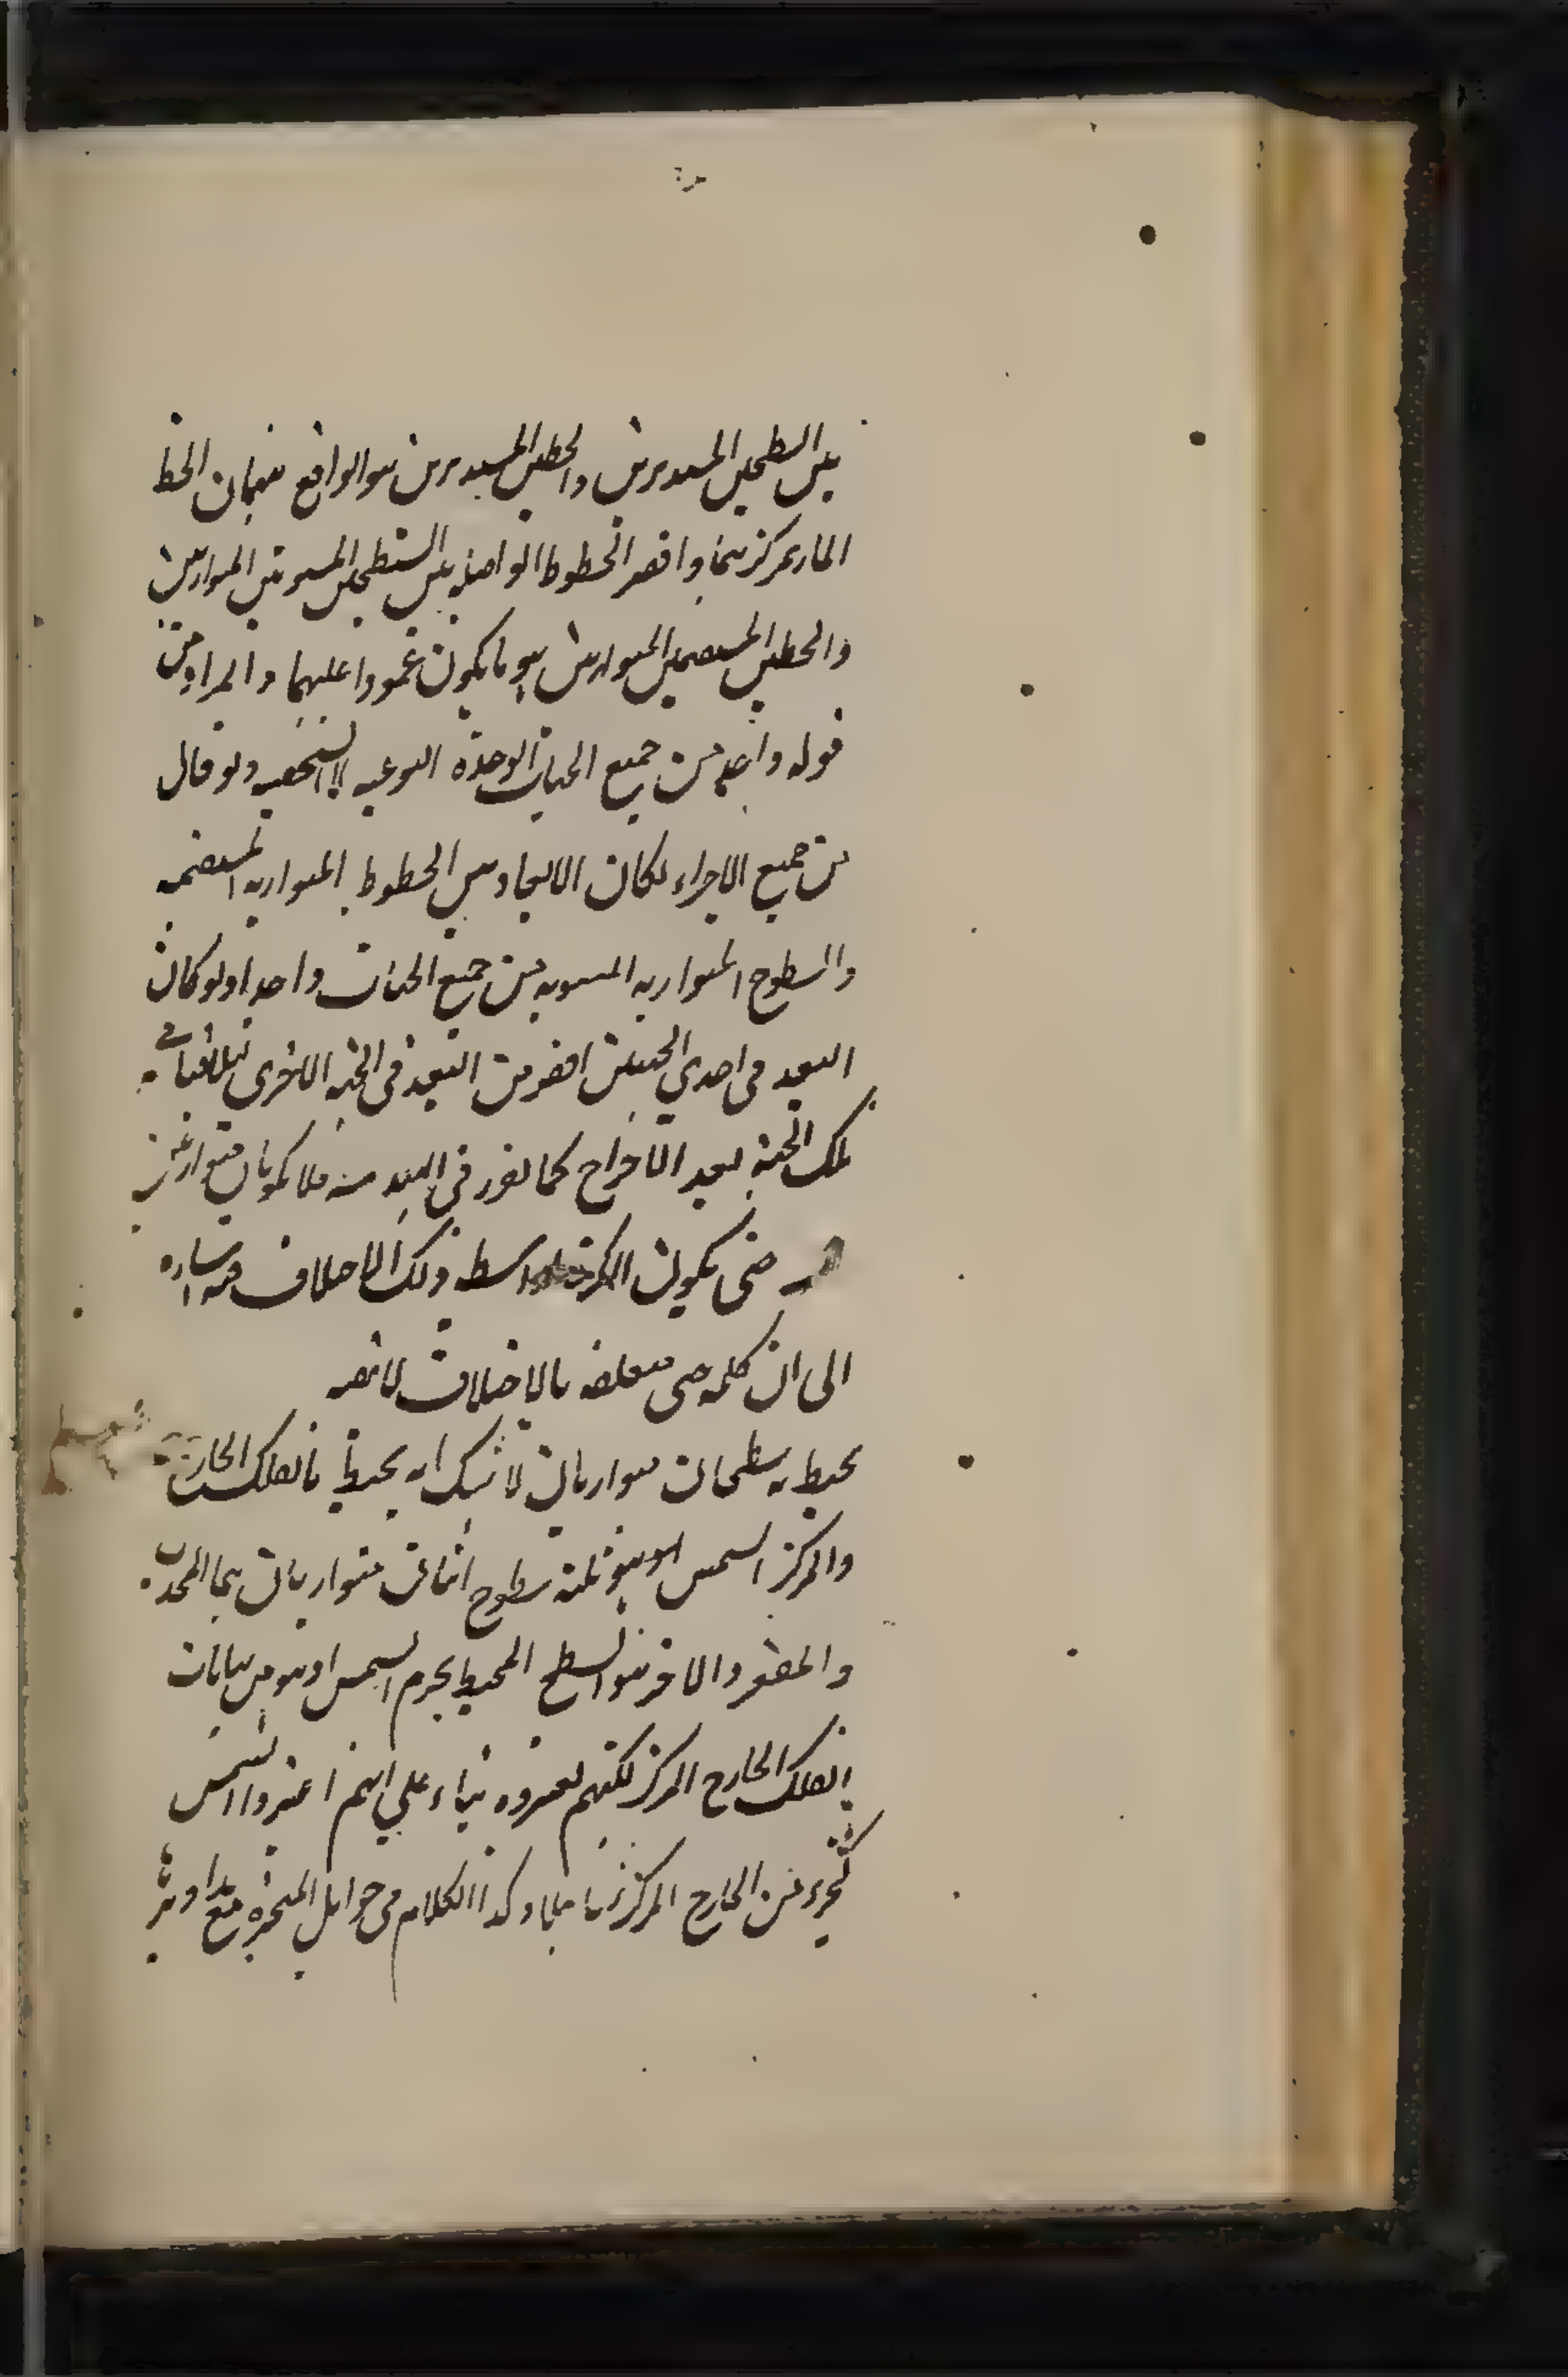 بين السطحين المستديرين والخطين المستديرين هو الواقع منهما من الخط
المار بمركزيهما واقصر الخطوط الواصلة بين السطحين المستويين المتوازيين
والخطين المستقيمين المتوازيين هو ما يكون عمودا عليهما والمراد من
قوله واحد من جميع الجهات الوحدة النوعية لا الشخصية ولو قال
من جميع الاجزاء لكان الابعاد بين الخطوط المتوازية المستقيمة
والسطوح المتوازية المستوية من جميع الجهات واحدا ولو كان
البعد في احدي الجهتين اقصر من البعد في الجهة الاخرى لتلاقيا في
تلك الجهة بعد الاخراج كما تقرر في الهندسة فلا يكونان متوازيين
حتى يكون الكرة واسطه ذلك الاختلاف فيه اشاره
الى ان كلمه حتى متعلقه بالاختلاف لا بقيد
يحيط به سطحان متوازيان لا شك انه يحيط بالفلك الخارج
والمركز الشمس ثلثة سطوح اثنان متوازيان هما المحدب
والمقعر والاخر هو السطح المحيط بجرم الشمس اوتدوير
الفلك الخارج المركز لكنهم بناء علي انهم اعتبروا الشمس
كجزء من الخارج المركز وكذا الكلام في حوامل المتحيرة مع تداويرها